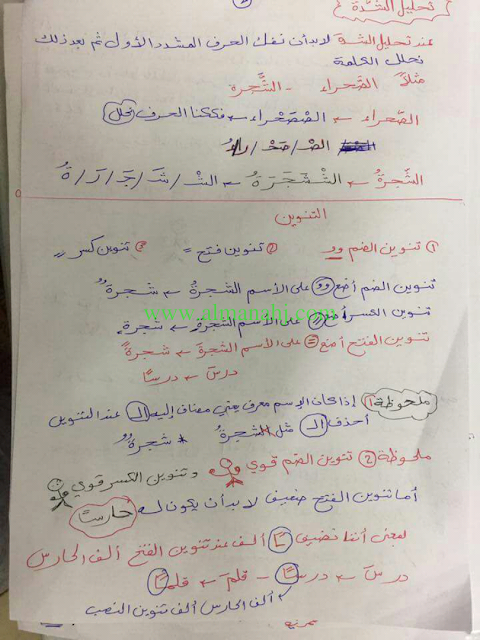 تحليل الشدة
عند تحليل الشدة لابد أن نفك الحرف المشدد الأول ثم بعد ذلك
نحلل الكلمة
مثلاً الصَّحراء - الشَّجرة
الصَّحراء ← الصْصَحْراء ← فككنا الحرف نحلل
الصْ / صَحْ / را / ءُ
الشَّجرةُ ← الشْشَجَرَةُ ← الشْ / شَـ / جَـ / رَ / ةُ
التنوين
① تنوين الضم ② تنوين فتح ③ تنوين كسر
تنوين الضم أضع على الأسم الشجرةُ ← شجرةٌ
تنوين الكسر أضع على الأسم الشجرةِ ← شجرةٍ
www.almanahj.com
تنوين الفتح أضع على الأسم الشجرةَ ← شجرةً
درسَ ← درساً
ملحوظة ① إذا كان الإسم معرف يعني مضاف إليه الـ عند التنوين
أحذف الـ مثل الشجرةُ * شجرةٌ
ملحوظة ② تنوين الضم قوي وتنوين الكسر قوي
أما تنوين الفتح ضعيف لابد أن يكون له حارساً
بمعنى أننا نضيف ألف عند تنوين الفتح ألف الحارس
درسَ ← درساً - قلمَ ← قلماً
ألف الحارس ألف تنوين النصب